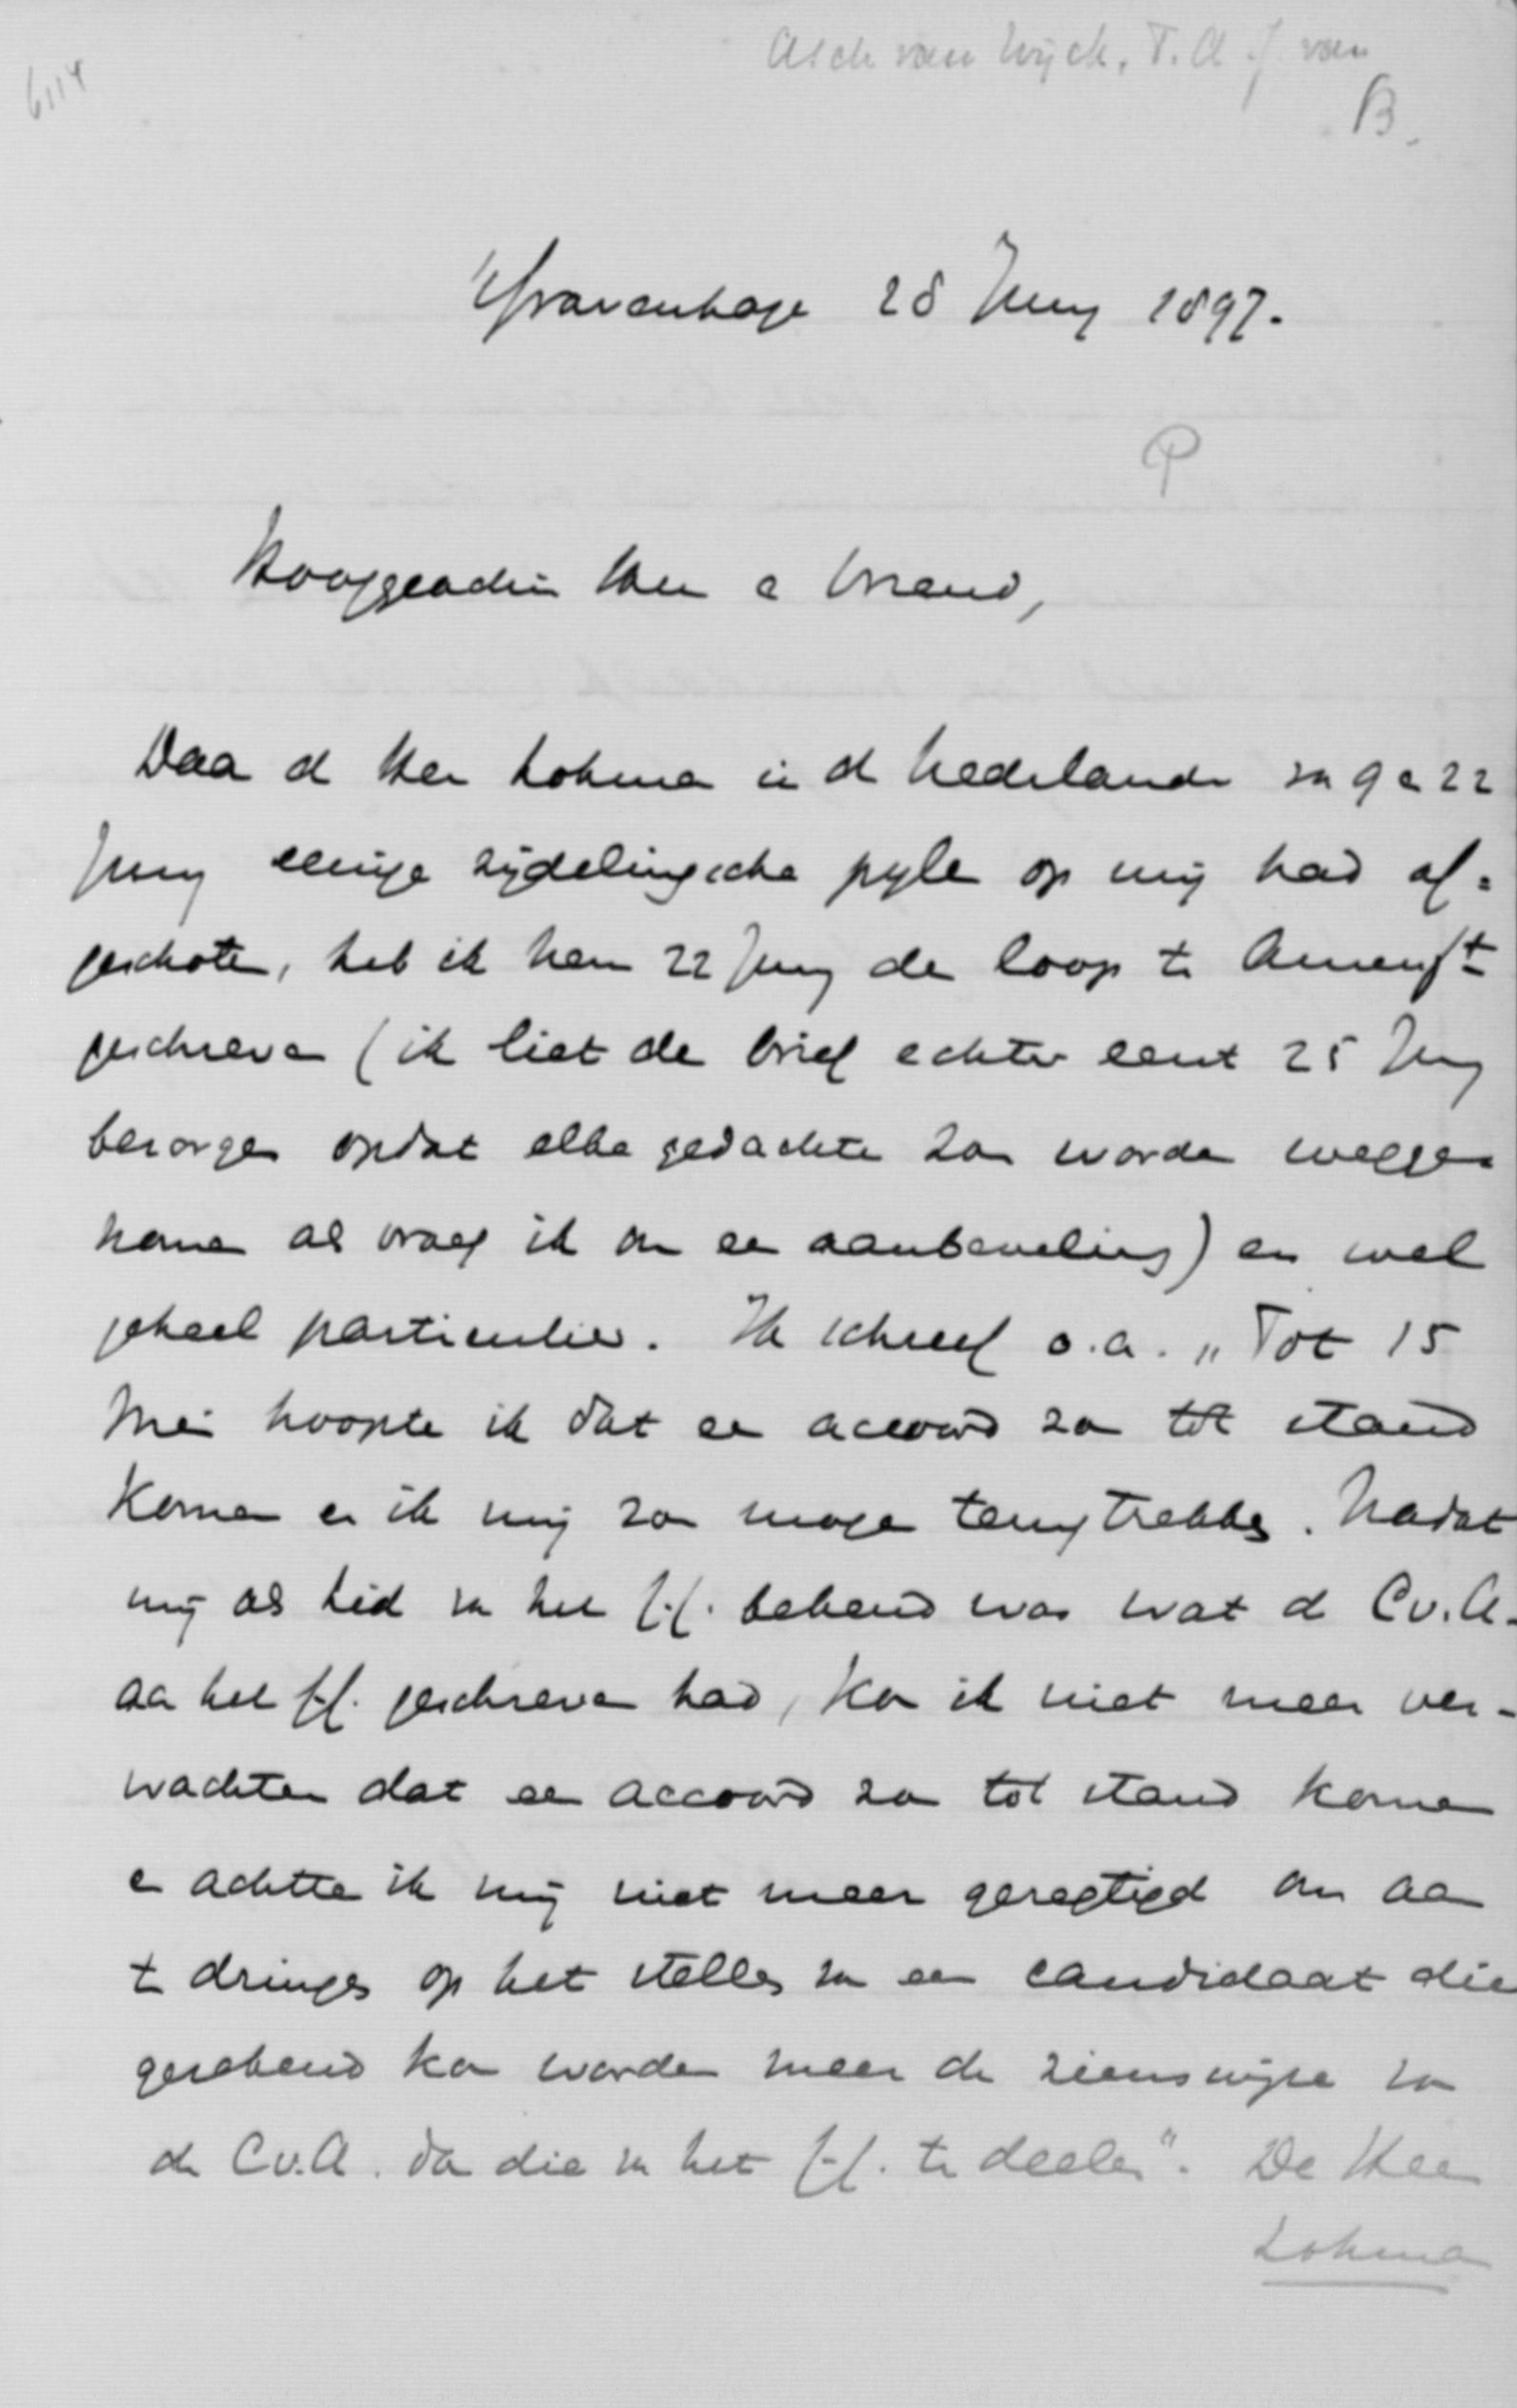 6114
Asch van Wijck, T. A. J. van
B.
'sGravenhage 28 Juny 1897.
P
Hooggeachte Heer e Vriend,
Daa d Heer Lohma i d Nederlande va 9 e 22
Juny eenige zijdelingsche pyle op mij had af-
geschote, heb ik hem 22 Juny de loop te Amersft
geschreve (ik liet de brief echter eerst 25 Juny
bezorge opdat elke gedachte zou worde wegge-
nome als vroeg ik om ee aanbeveling) en wel
geheel particulier. Ik schreef o.a. „Tot 15
Mei hoopte ik dat ee accoord zou tot stand
kome e ik mij zou moge terugtrekke. Nadat
mij als Lid va het C.C. bekend was wat d C.v.A.
aa het C.C. geschreve had, ko ik niet meer ver-
wachten dat ee accoord zou tot stand kome
e achtte ik mij niet meer geregtigd om aa
te dringe op het stelle va ee candidaat die
gerekend ko worde meer de zienswijze va
de C.v.A. da die va het C.C. te deele". De Heer
Lohma